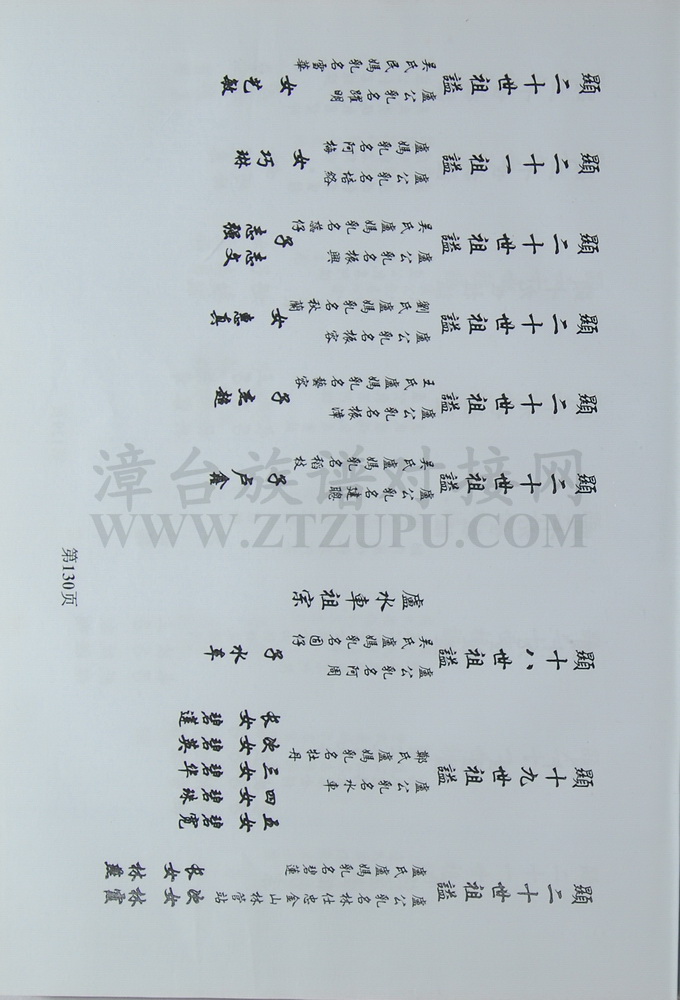 吳氏民媽乳名雪華
顯二十世祖謚
盧公乳名躍明
女 艺敏
盧媽乳名阿梅
顯二十一祖謚
盧公乳名培絡
女 巧琳
吳氏盧媽乳名蕊仔
顯二十世祖謚
盧公乳名振興
子 志强
志文
劉氏盧媽乳名秋蘭
顯二十世祖謚
盧公乳名振容
女 惠真
王氏盧媽乳名藝容
顯二十世祖謚
盧公乳名振漳
子 超
吳氏盧媽乳名稻枝
顯二十世祖謚
盧公乳名建聰
子 卢鑫
盧水車祖宗
吳氏盧媽乳名固仔
顯十八世祖謚
盧公乳名阿周
子 水車
鄭氏盧媽乳名牡丹
顯十九世祖謚
盧公乳名水車
长女 碧莲
次女 碧英
三女 碧华
四女 碧珠
五女 碧宽
盧氏盧媽乳名碧蓮
顯二十世祖謚
盧公乳名林仕忠金山林营站
长女 林燕
次女 林霞
第130页
漳台族谱对接网
WWW.ZTZUPU.COM